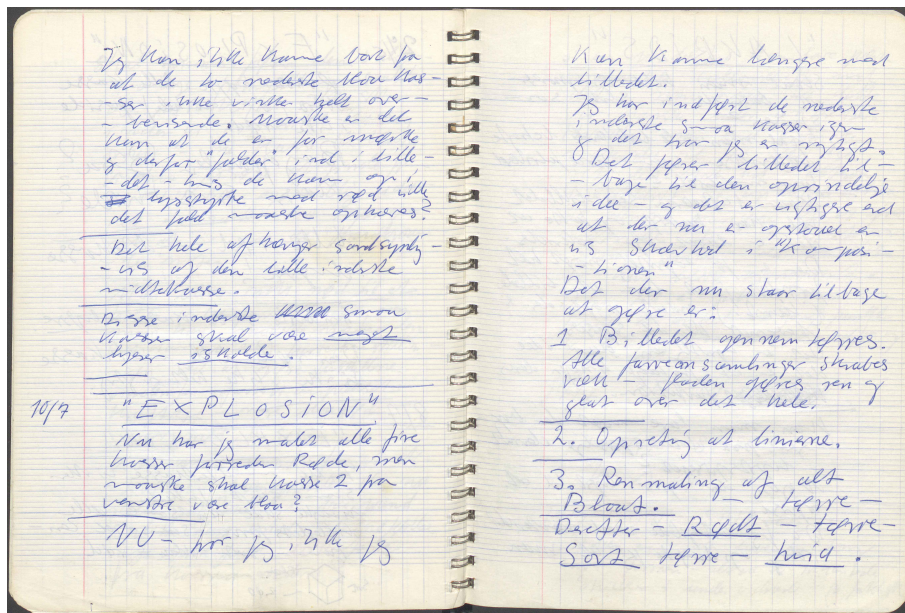 Jeg kan ikke komme bort fra
at de to nederste blaa kas-
-ser ikke virker helt over-
-bevisende. Maaske er det
kun at de er for mørke
og derfor "falder" ind i bille-
-det - hvis de kom op i
lysstyrke med rød ville
det fald maaske ophøre?
Det hele afhænger sandsynlig-
-vis af den lille inderste
midtekasse.
Disse inderste smaa
kasser skal være meget
lyser iskolde.
10/7 "EXPLOSION"
Nu har jeg malet alle fire
kasser forneden Røde, men
maaske skal kasse 2 fra
venstre være blaa?
NU - tror jeg ikke jeg
kan komme længere med
billedet.
Jeg har indføjet de nederste
inderste smaa kasser igen
og det tror jeg er rigtigt.
Det fører billedet til-
-bage til den oprindelige
ide - og det er vigtigere end
at der nu er opstaaet en
vis skævhed i "Komposi-
-tionen"
Det der nu staar tilbage
at gøre er:
1 Billedet gennemtørres.
Alle farveansamlinger skrabes
væk - fladen gøres ren og
glat over det hele.
2. Opretning af linierne.
3. Renmaling af alt
Blaat. - tørre -
Derefter - Rødt - tørre -
Sort tørre - hvid.